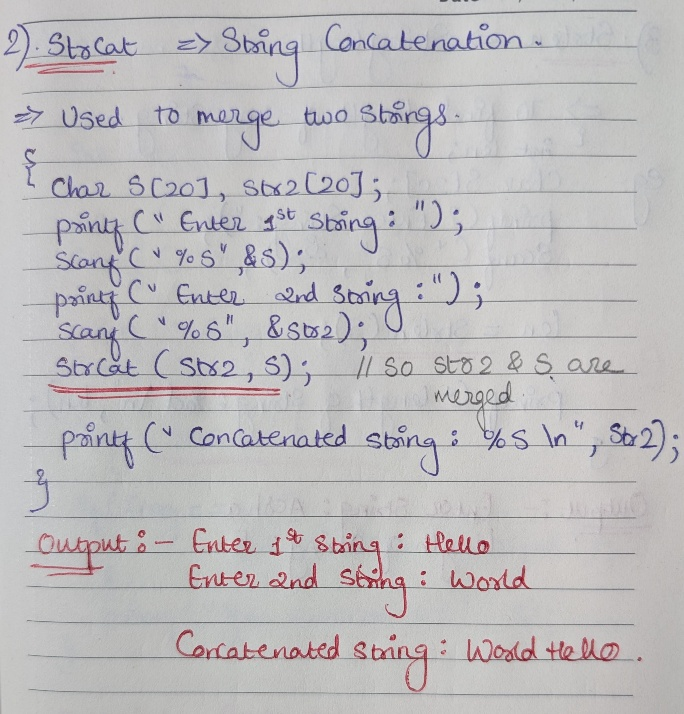 2). StrCat => String Concatenation.
=> Used to merge two strings.
{
Char S[20], Str2[20];
printf (" Enter 1st String : ");
Scanf (" %S", &S);
printf (" Enter 2nd String : ");
Scanf (" %S", &Str2);
StrCat ( Str2, S); // So str2 & S are
merged.
printf (" Concatenated string : %S \n", Str2);
}
Output :- Enter 1st String : Hello
Enter 2nd String : World
Concatenated String : World Hello.